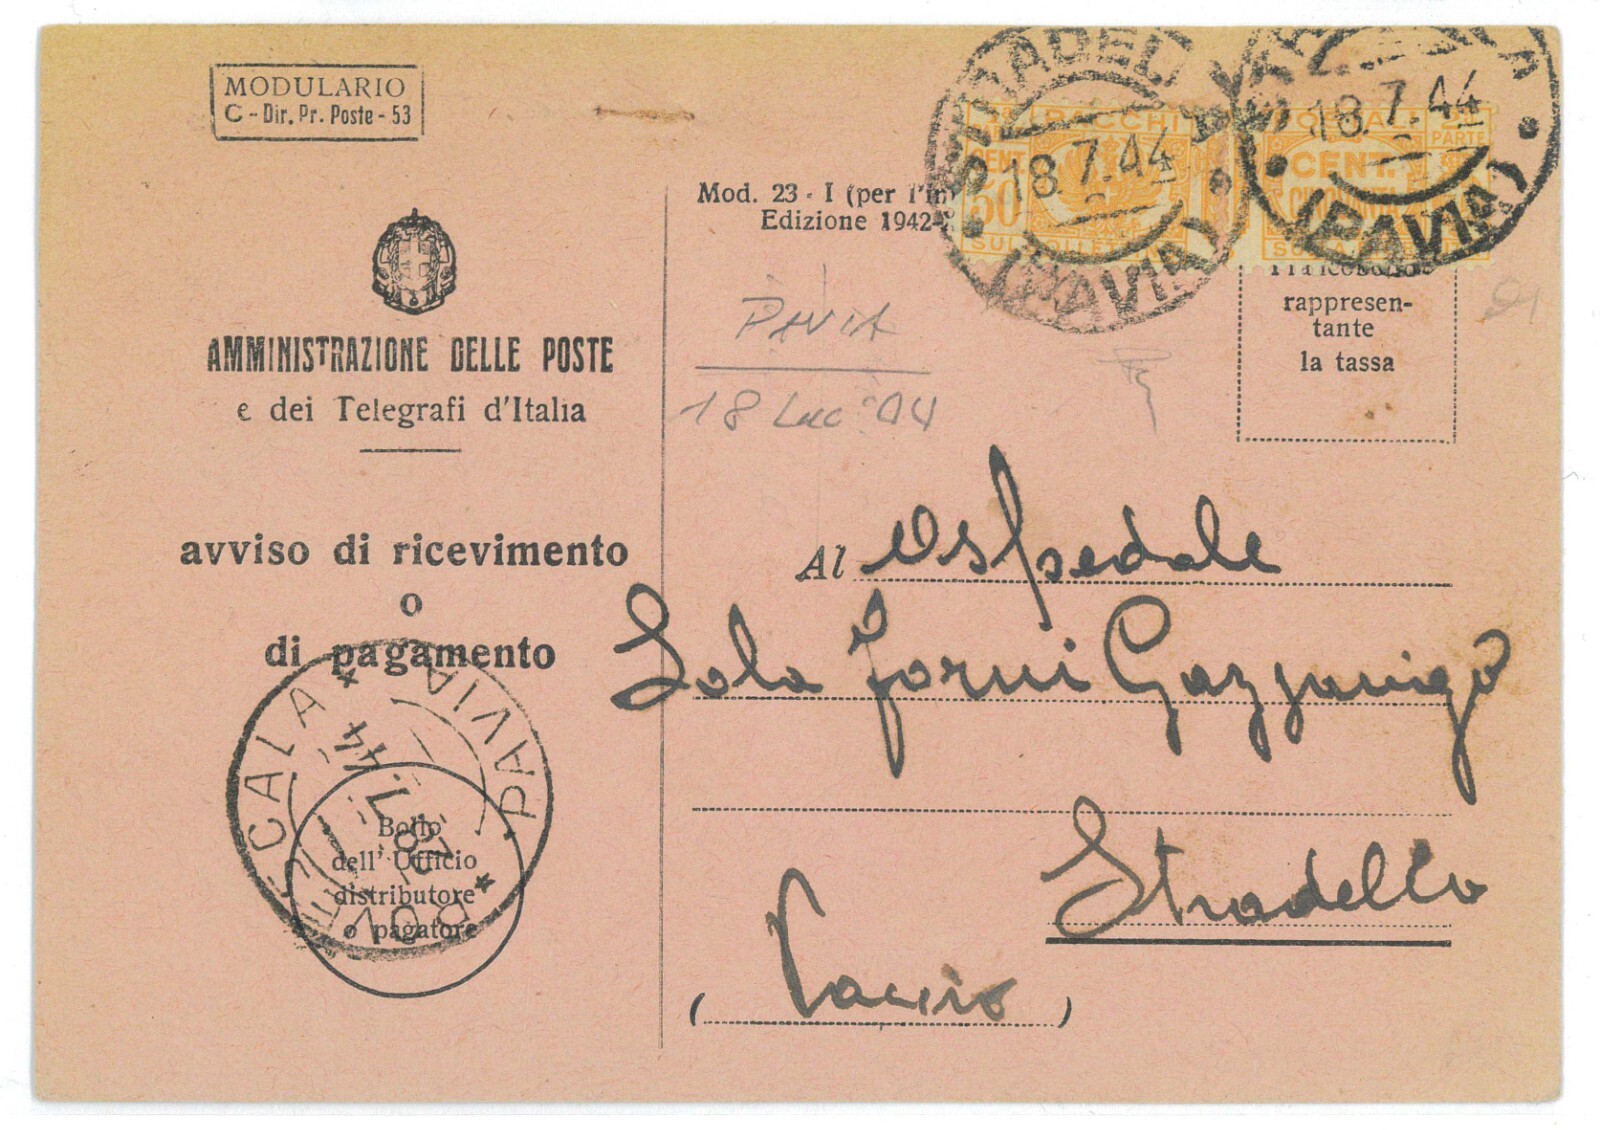 MODULARIO
C - Dir. Pr. Poste - 53
AMMINISTRAZIONE DELLE POSTE
e dei Telegrafi d'Italia
avviso di ricevimento
o
di pagamento
Bollo
dell' Ufficio
distributore
o pagatore
PAVIA
18.7.44
Mod. 23 - I (per l'in
Edizione 1942-
PAVIA
18 Lug 44
PACCHI
CENT.
50
SUL BOLLETTINO
18.7.44
(PAVIA)
POSTALI
2ª
PARTE
CENT.
CINQUANTA
18.7.44
(PAVIA)
rappresen-
tante
la tassa
Al Ospedale
Sola Forni Gazzaniga
Stradella
(          )